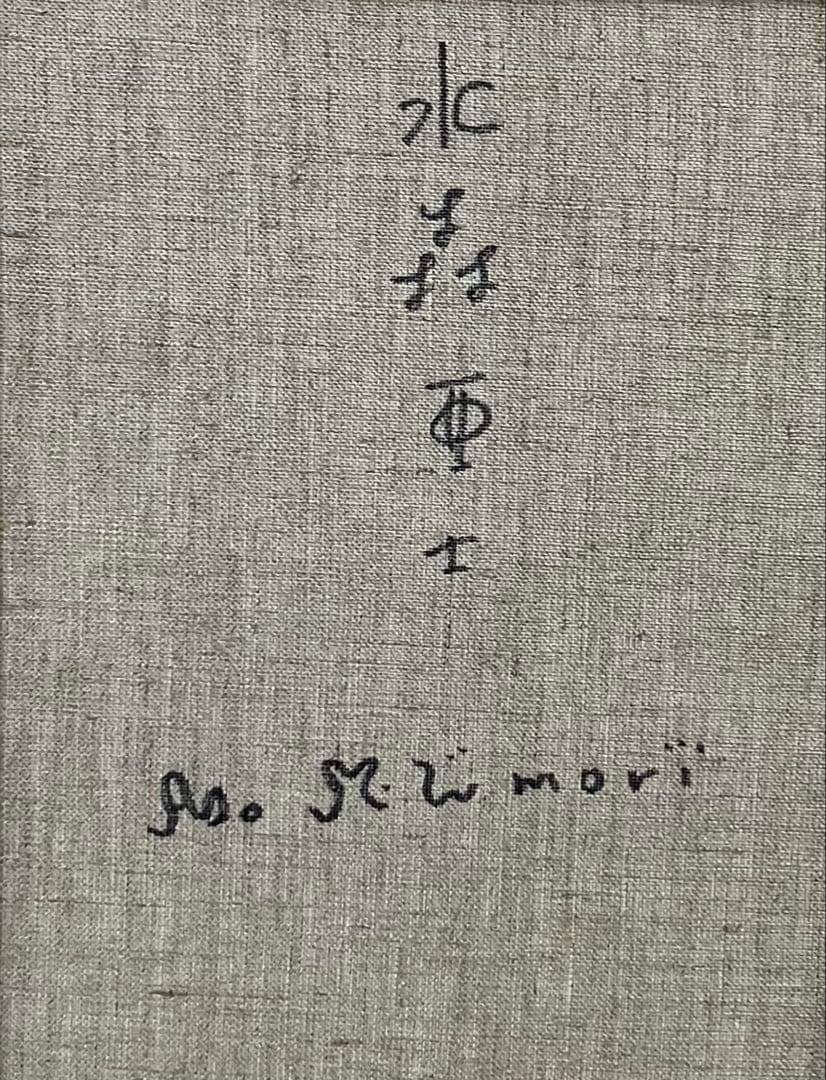 水森亜土
Ado. Mizumori